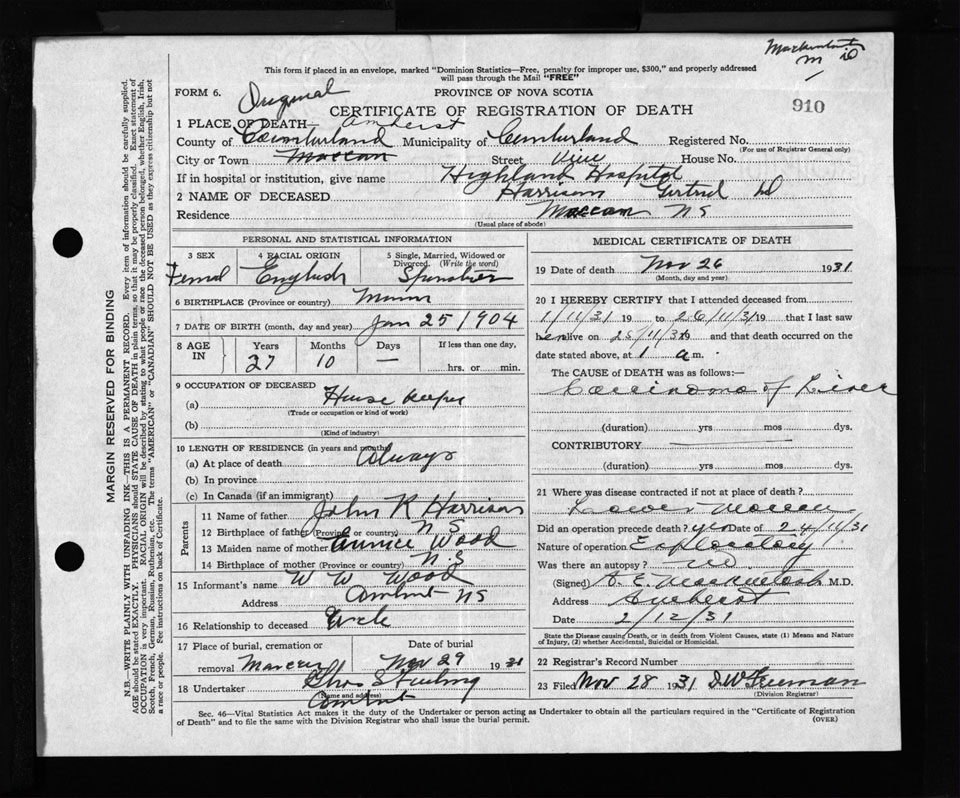 This form if placed in an envelope, marked "Dominion Statistics—Free, penalty for improper use, $300," and properly addressed
will pass through the Mail "FREE"
FORM 6.
Original
PROVINCE OF NOVA SCOTIA
CERTIFICATE OF REGISTRATION OF DEATH
910
1 PLACE OF DEATH— Amherst
County of Cumberland Municipality of Cumberland Registered No.
(For use of Registrar General only)
City or Town Maccan Street View House No.
If in hospital or institution, give name Highland Hospital
2 NAME OF DECEASED Harrison Gertrud
Residence Maccan NS
(Usual place of abode)
PERSONAL AND STATISTICAL INFORMATION
3 SEX 4 RACIAL ORIGIN 5 Single, Married, Widowed or Divorced. (Write the word)
Femal English Spinster
6 BIRTHPLACE (Province or country)
7 DATE OF BIRTH (month, day and year) Jan 25 1904
8 AGE IN Years Months Days If less than one day,
27 10 — hrs. or min.
9 OCCUPATION OF DECEASED
(a) House keeper
(Trade or occupation or kind of work)
(b)
(Kind of industry)
10 LENGTH OF RESIDENCE (in years and months)
(a) At place of death Always
(b) In province
(c) In Canada (if an immigrant)
Parents
11 Name of father John R Harrison
12 Birthplace of father (Province or country) N S
13 Maiden name of mother Eunice Wood
14 Birthplace of mother (Province or country) N.S
15 Informant's name W W Wood
Address NS
16 Relationship to deceased Uncle
17 Place of burial, cremation or Date of burial
removal Maccan Nov 29 1931
18 Undertaker Chas Sterling
(Name and address)
MEDICAL CERTIFICATE OF DEATH
19 Date of death Nov 26 1931
(Month, day and year)
20 I HEREBY CERTIFY that I attended deceased from
1/11/31 19 to 26/11/31 19 that I last saw
her alive on 25/11/31 and that death occurred on the
date stated above, at 1 a m.
The CAUSE OF DEATH was as follows:
Carcinoma of Liver
(duration) yrs mos dys.
CONTRIBUTORY
(duration) yrs mos dys.
21 Where was disease contracted if not at place of death?
Lower Maccan
Did an operation precede death? yes Date of 24/11/31
Nature of operation Exploratory
Was there an autopsy? no
(Signed) MacKintosh M.D.
Address Amherst
Date 2/12/31
State the Disease causing Death, or in death from Violent Causes, state (1) Means and Nature
of Injury, (2) whether Accidental, Suicidal or Homicidal.
22 Registrar's Record Number
23 Filed Nov 28 1931 D.W Freeman
(Division Registrar)
Sec. 46—Vital Statistics Act makes it the duty of the Undertaker or person acting as Undertaker to obtain all the particulars required in the "Certificate of Registration
of Death" and to file the same with the Division Registrar who shall issue the burial permit. (OVER)
MARGIN RESERVED FOR BINDING
N.B.—WRITE PLAINLY WITH UNFADING INK—THIS IS A PERMANENT RECORD. Every item of information should be carefully supplied.
AGE should be stated EXACTLY. PHYSICIANS should STATE CAUSE OF DEATH in plain terms, so that it may be properly classified. Exact statement of
OCCUPATION is very important. RACIAL ORIGIN will be described by stating to what people or race the deceased person belonged, whether English, Irish,
Scotch, French, German, Russian, Ruthenian, etc. The terms "AMERICAN" or "CANADIAN" SHOULD NOT BE USED as they express citizenship but not
a race or people. Fee instructions on back of Certificate.